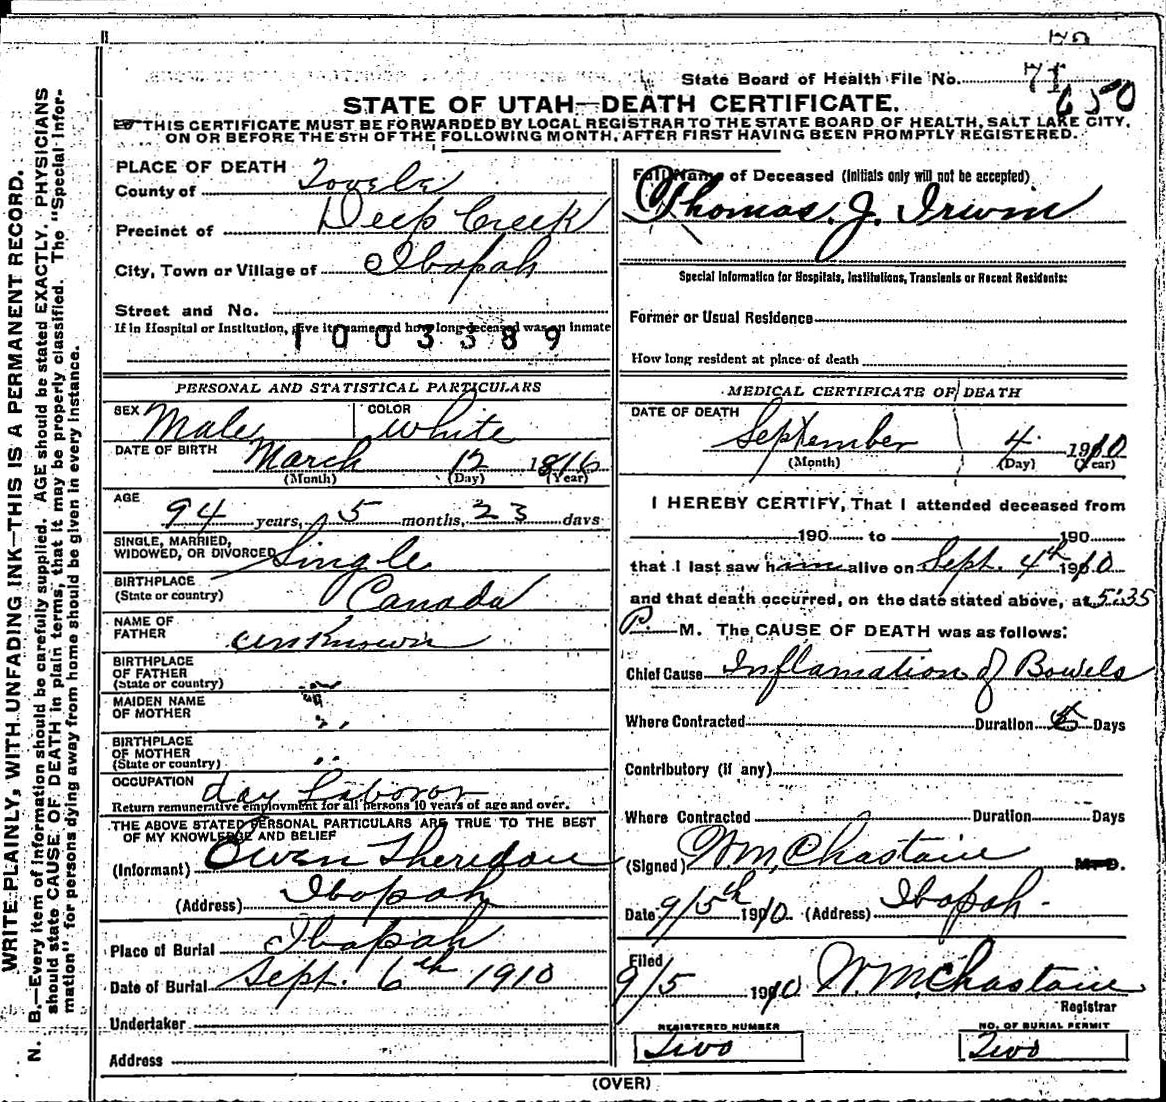 State Board of Health File No. 71
650
STATE OF UTAH—DEATH CERTIFICATE.
THIS CERTIFICATE MUST BE FORWARDED BY LOCAL REGISTRAR TO THE STATE BOARD OF HEALTH, SALT LAKE CITY,
ON OR BEFORE THE 5TH OF THE FOLLOWING MONTH, AFTER FIRST HAVING BEEN PROMPTLY REGISTERED.
WRITE PLAINLY, WITH UNFADING INK—THIS IS A PERMANENT RECORD.
N. B.—Every item of Information should be carefully supplied. AGE should be stated EXACTLY. PHYSICIANS
should state CAUSE OF DEATH in plain terms, that it may be properly classified. The "Special Infor-
mation" for persons dying away from home should be given in every instance.
PLACE OF DEATH
County of Tooele
Precinct of Deep Creek
City, Town or Village of Ibapah
Street and No.
If in Hospital or Institution, give its name and how long deceased was an inmate
1003389
PERSONAL AND STATISTICAL PARTICULARS
SEX Male COLOR White
DATE OF BIRTH March 12 1816
(Month) (Day) (Year)
AGE 94 years, 5 months, 23 days
SINGLE, MARRIED,
WIDOWED, OR DIVORCED Single
BIRTHPLACE
(State or country) Canada
NAME OF
FATHER unknown
BIRTHPLACE
OF FATHER
(State or country)
MAIDEN NAME
OF MOTHER
BIRTHPLACE
OF MOTHER
(State or country)
OCCUPATION day laboror
Return remunerative employment for all persons 10 years of age and over.
THE ABOVE STATED PERSONAL PARTICULARS ARE TRUE TO THE BEST
OF MY KNOWLEDGE AND BELIEF
(Informant) Owen Sheridan
(Address) Ibapah
Place of Burial Ibapah
Date of Burial Sept. 6th 1910
Undertaker
Address
Full Name of Deceased (Initials only will not be accepted)
Thomas. J. Irwin
Special Information for Hospitals, Institutions, Transients or Recent Residents:
Former or Usual Residence
How long resident at place of death
MEDICAL CERTIFICATE OF DEATH
DATE OF DEATH
September 4 1910
(Month) (Day) (Year)
I HEREBY CERTIFY, That I attended deceased from
190 to 190
that I last saw him alive on Sept. 4th 1910
and that death occurred, on the date stated above, at 5:35
P. M. The CAUSE OF DEATH was as follows:
Chief Cause Inflamation of Bowels
Where Contracted Duration 5 Days
Contributory (if any)
Where Contracted Duration Days
(Signed) Wm Chastain M.D.
Date 9/5th 1910 (Address) Ibapah.
Filed
9/5 1910 Wm Chastain
Registrar
REGISTERED NUMBER
Two
NO. OF BURIAL PERMIT
Two
(OVER)